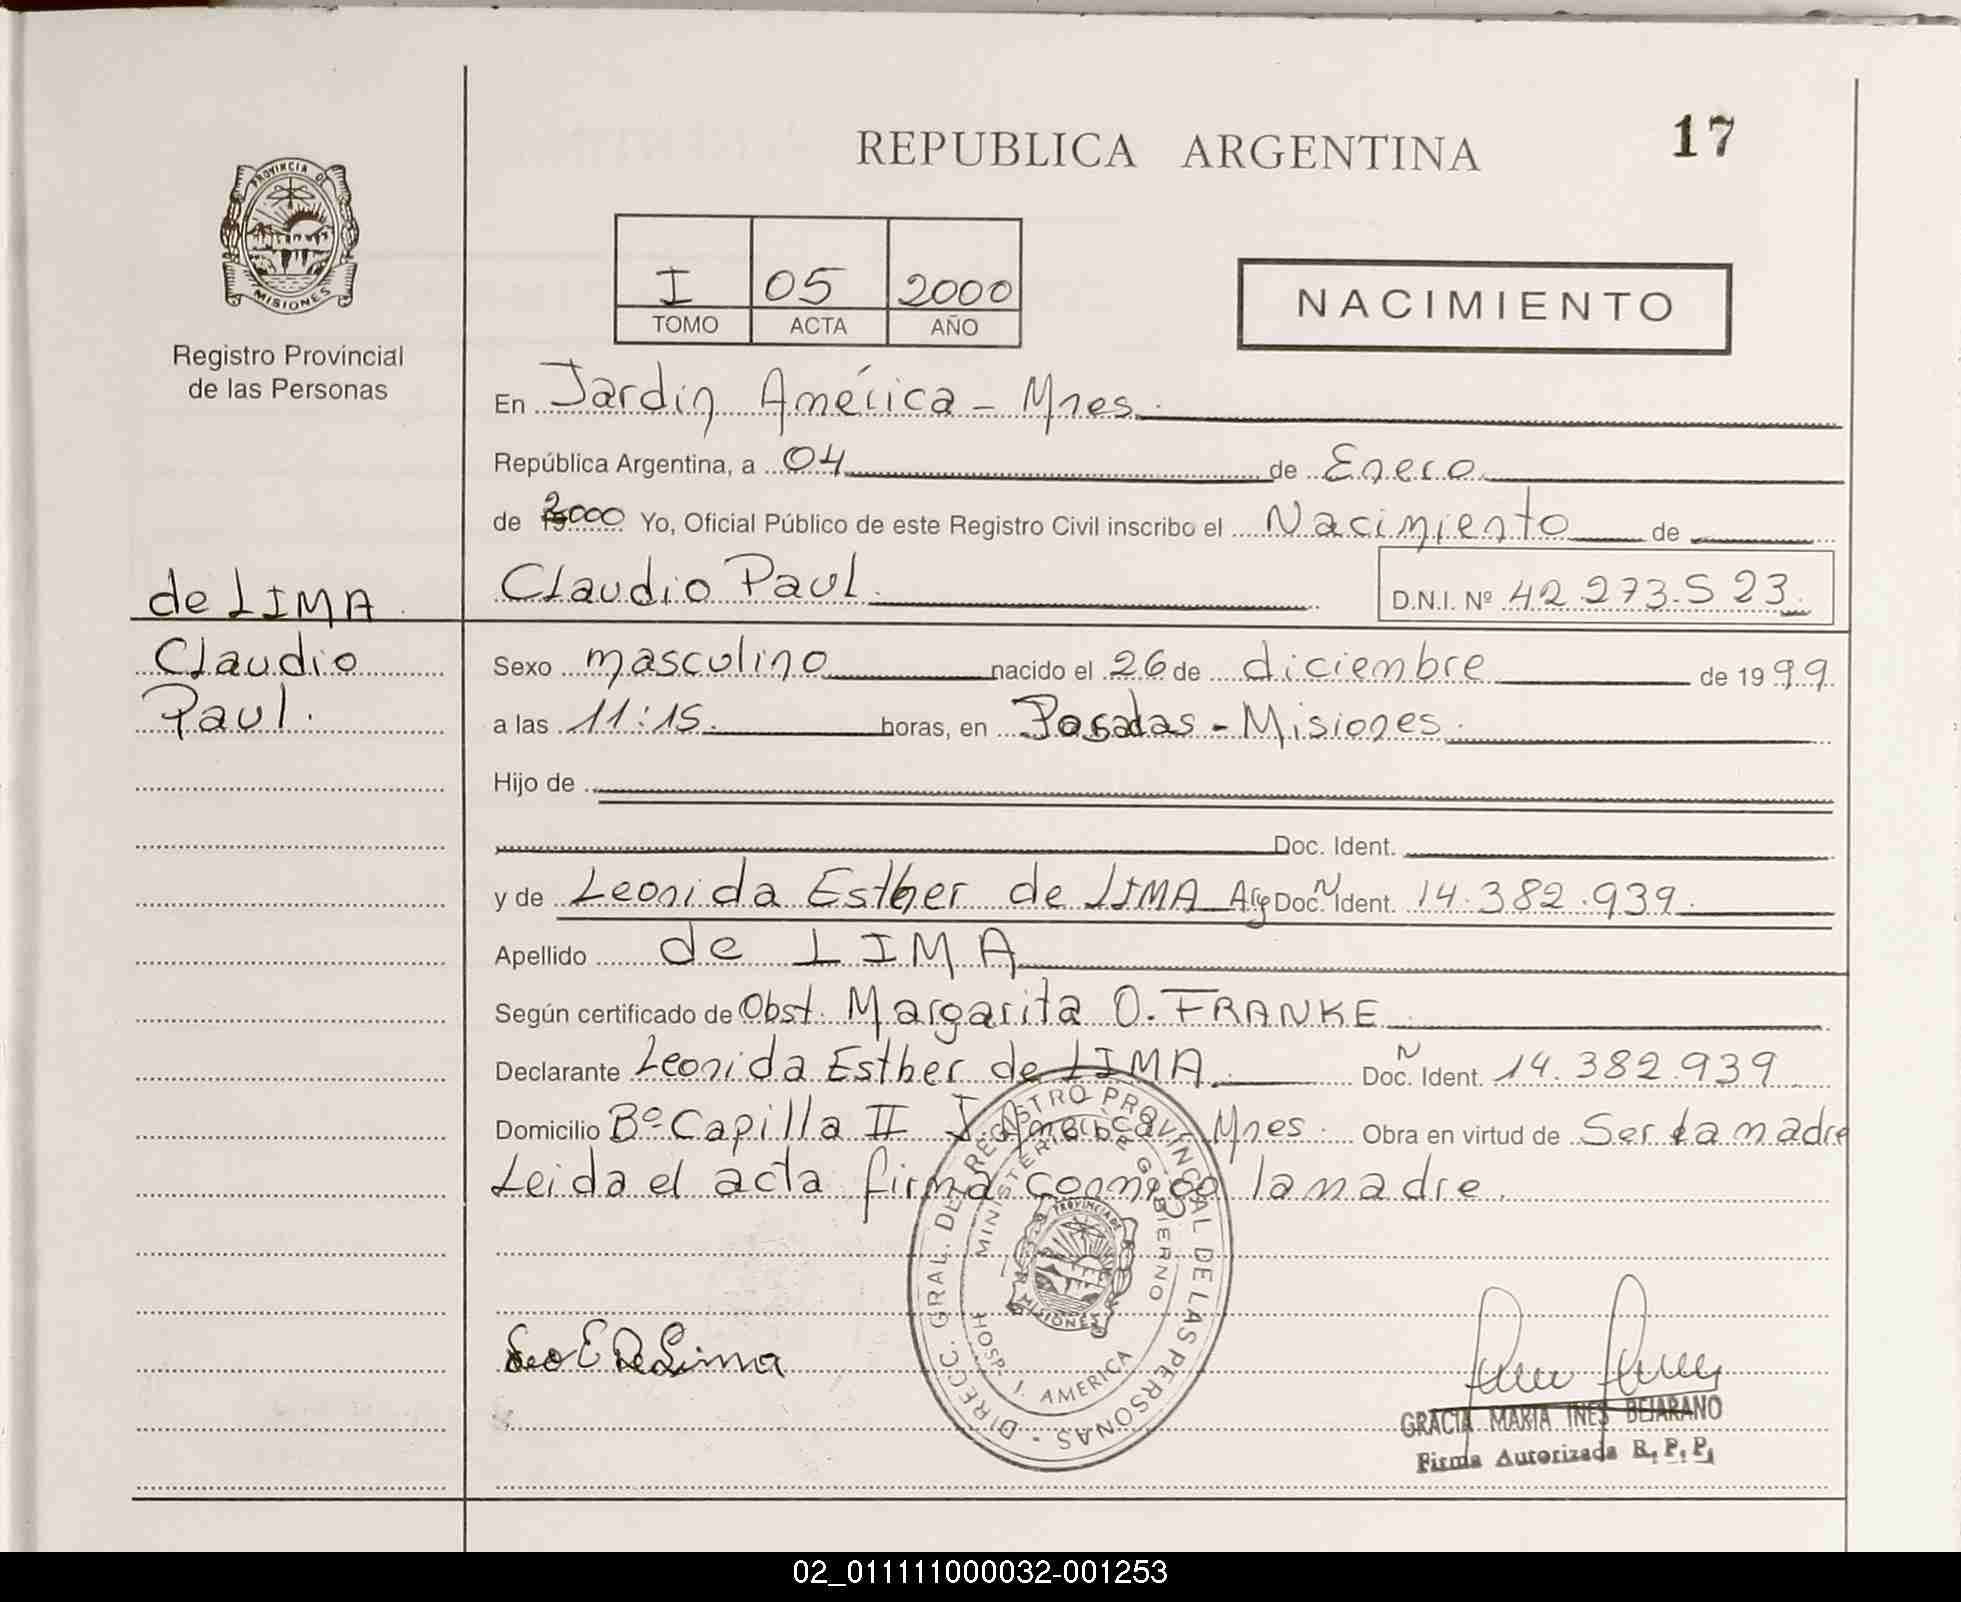 REPUBLICA ARGENTINA
17
PROVINCIA DE
MISIONES
Registro Provincial
de las Personas
I 05 2000
TOMO ACTA AÑO
NACIMIENTO
En Jardin América - Mnes.
República Argentina, a 04 de Enero
de 2000 Yo, Oficial Público de este Registro Civil inscribo el Nacimiento de
Claudio Paul
D.N.I. Nº 42 273.523.
de LIMA.
Claudio
Paul.
Sexo masculino nacido el 26 de diciembre de 1999
a las 11:15. horas, en Posadas - Misiones.
Hijo de
Doc. Ident.
y de Leonida Esther de LIMA Arg Doc. N Ident. 14.382.939.
Apellido de LIMA
Según certificado de Obst. Margarita O. FRANKE
Declarante Leonida Esther de LIMA. Doc. N Ident. 14.382.939
Domicilio Bº Capilla II J. América Mnes. Obra en virtud de Ser la madre
Leida el acta firma conmigo la madre.
DIRECC. GRAL. DEL REGISTRO PROVINCIAL DE LAS PERSONAS -
MINISTERIO DE GOBIERNO
HOSP. J. AMERICA
PROVINCIA DE
MISIONES
Leo E De Lima
GRACIA MARIA INES BEJARANO
Firma Autorizada R. P. P.
02_011111000032-001253